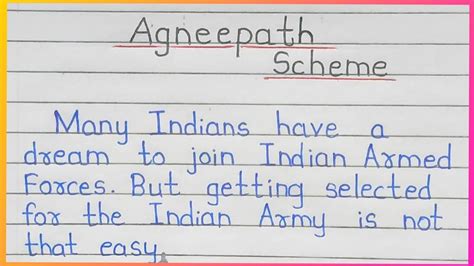 Agneepath
Scheme
Many Indians have a
dream to join Indian Armed
Forces. But getting selected
for the Indian Army is not
that easy.